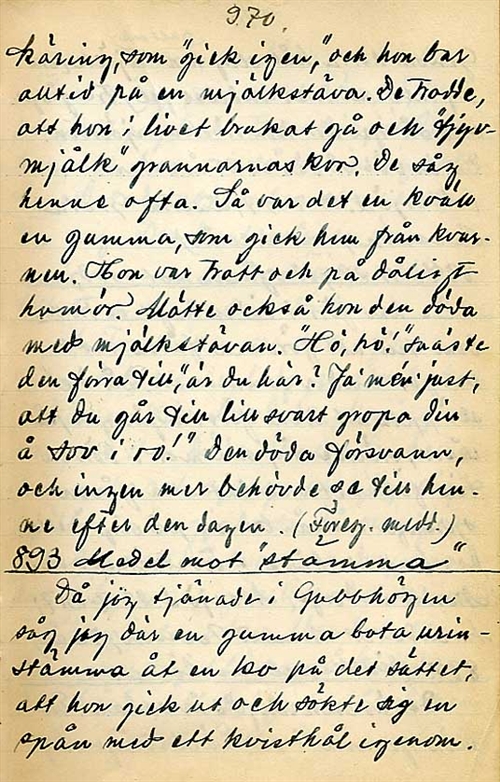 970.
käring, som "gick igen," och hon bar
alltid på en mjölkstäva. De trodde,
att hon i livet brukat gå och "tjyv-
mjölk" grannarnas kor. De såg
henne ofta. Så var det en kväll
en gumma, som gick hem från kvar-
nen. Hon var trött och på dåligt
humör. Mötte också hon den döda
med mjölkstävan. "Hö, hö!" snäste
den förra till, "är du här? Ja' mén' just,
att du går till litt svart gropa din
å sov i ro!" Den döda försvann,
och ingen mer behövde se till hen-
ne efter den dagen. (Föreg. medd.)
893 Medel mot "stämma"
Då jag tjänade i Gubbhögen
såg jag där en gumma bota urin-
stämma åt en ko på det sättet,
att hon gick ut och sökte sig en
spån med ett kvisthål igenom.